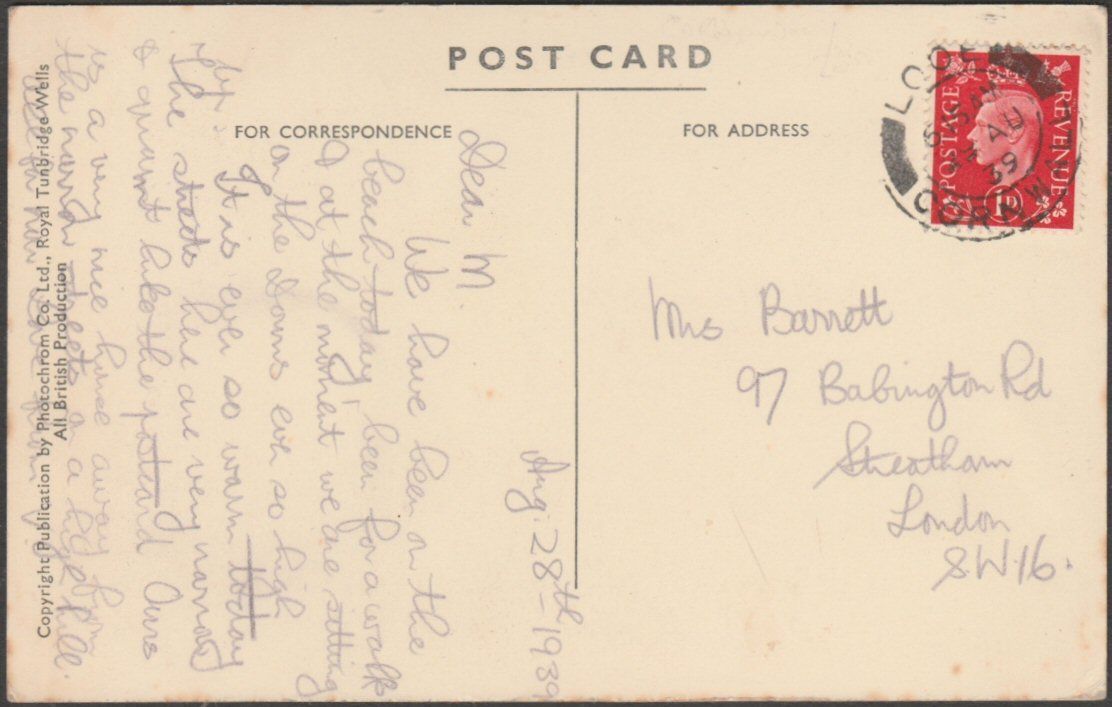 POST CARD
FOR CORRESPONDENCE
FOR ADDRESS
LOOE
5 AM
AU
39
CORNWALL
POSTAGE
REVENUE
1D
Mrs Barrett
97 Babington Rd
Streatham
London
SW16.
Aug. 28th - 1939
Dear M.
We have been on the
beach today, been for a walk
& at the moment we are sitting
on the Downs ever so high
up.
It is ever so warm today
The streets here are very narrow
& quaint like the postcard Ours
is a very nice house away from
the narrow streets on a high hill.
Copyright Publication by Photochrom Co. Ltd., Royal Tunbridge Wells
All British Production